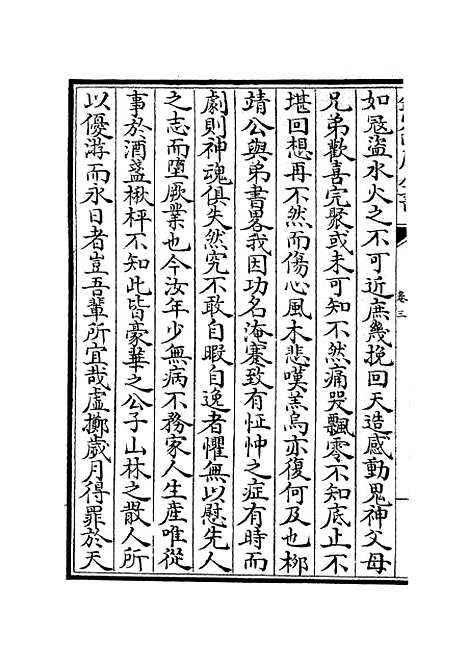 卷三
如宼盜水火之不可近庶幾挽回天造感動鬼神父母
兄弟歡喜完聚或未可知不然痛哭飄零不知底止不
堪回想再不然而傷心風木悲嘆羔烏亦復何及也柳
靖公與弟書畧我因功名淹蹇致有怔忡之症有時而
劇則神魂俱失然究不敢自暇自逸者懼無以慰先人
之志而墮厥業也今汝年少無病不務家人生產唯從
事於酒盞楸枰不知此皆豪華之公子山林之散人所
以優游而永日者豈吾輩所宜哉虛擲歲月得罪於天